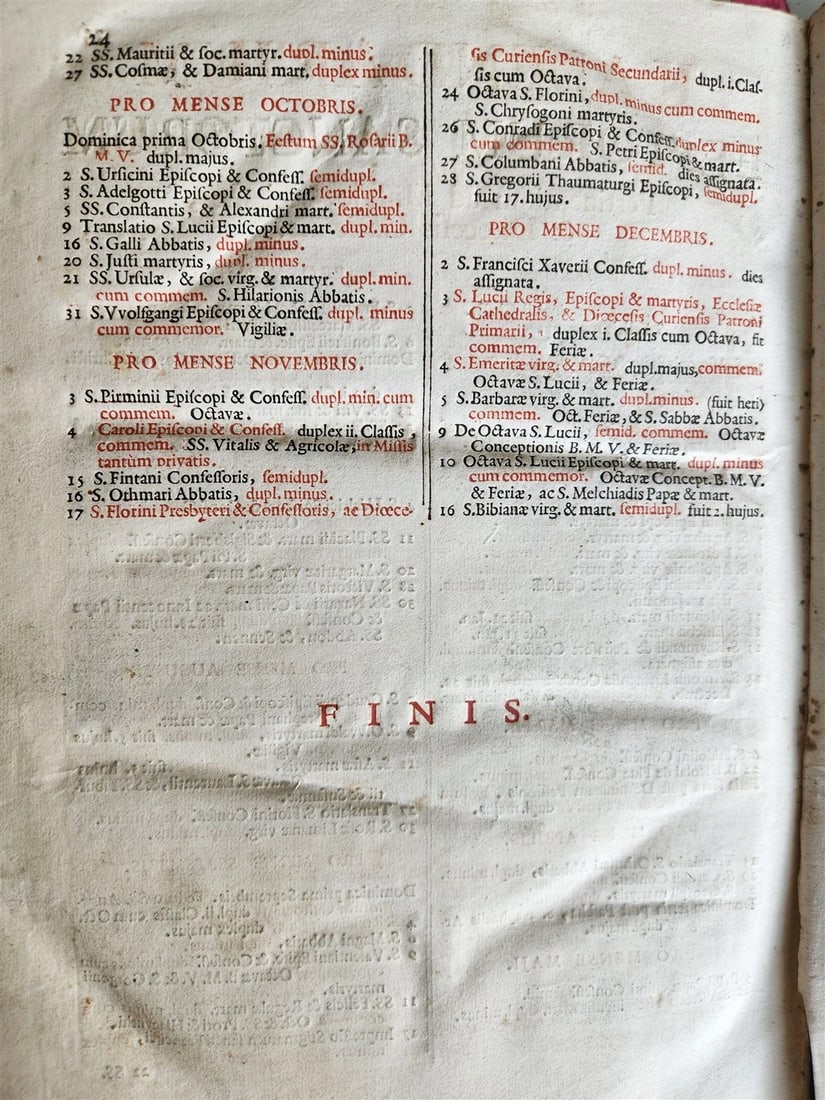 24
22 SS. Mauritii & ſoc. martyr. dupl. minus.
27 SS. Coſmæ, & Damiani mart. duplex minus.
PRO MENSE OCTOBRIS.
Dominica prima Octobris. Feſtum SS. Roſarii B.
M. V. dupl. majus.
2 S. Urſicini Epiſcopi & Confeſſ. ſemidupl.
3 S. Adelgotti Epiſcopi & Confeſſ. ſemidupl.
5 SS. Conſtantis, & Alexandri mart. ſemidupl.
9 Translatio S. Lucii Epiſcopi & mart. dupl. min.
16 S. Galli Abbatis, dupl. minus.
20 S. Juſti martyris, dupl. minus.
21 SS. Urſulæ, & ſoc. virg. & martyr. dupl. min.
cum commem. S. Hilarionis Abbatis.
31 S. VVolfgangi Epiſcopi & Confeſſ. dupl. minus
cum commemor. Vigiliæ.
PRO MENSE NOVEMBRIS.
3 S. Pirminii Epiſcopi & Confeſſ. dupl. min. cum
commem. Octavæ.
4 Caroli Epiſcopi & Confeſſ. duplex ii. Claſſis,
commem. SS. Vitalis & Agricolæ, in Miſſis
tantùm privatis.
15 S. Fintani Confeſſoris, ſemidupl.
16 S. Othmari Abbatis, dupl. minus.
17 S. Florini Presbyteri & Confeſſoris, ac Diœce-
ſis Curienſis Patroni Secundarii, dupl. i. Claſ-
ſis cum Octava.
24 Octava S. Florini, dupl. minus cum commem.
S. Chryſogoni martyris.
26 S. Conradi Epiſcopi & Confeſſ. duplex minus
cum commem. S. Petri Epiſcopi & mart.
27 S. Columbani Abbatis, ſemid. dies aſſignata.
28 S. Gregorii Thaumaturgi Epiſcopi, ſemidupl.
fuit 17. hujus.
PRO MENSE DECEMBRIS.
2 S. Franciſci Xaverii Confeſſ. dupl. minus. dies
aſſignata.
3 S. Lucii Regis, Epiſcopi & martyris, Eccleſiæ
Cathedralis, & Diœceſis Curienſis Patroni
Primarii, duplex i. Claſſis cum Octava, fit
commem. Feriæ.
4 S. Emeritæ virg. & mart. dupl. majus, commem.
Octavæ S. Lucii, & Feriæ.
5 S. Barbaræ virg. & mart. dupl. minus. (fuit heri)
commem. Oct. Feriæ, & S. Sabbæ Abbatis.
9 De Octava S. Lucii, ſemid. commem. Octavæ
Conceptionis B. M. V. & Feriæ.
10 Octava S. Lucii Epiſcopi & mart. dupl. minus
cum commemor. Octavæ Concept. B. M. V.
& Feriæ, ac S. Melchiadis Papæ & mart.
16 S. Bibianæ virg. & mart. ſemidupl. fuit 2. hujus.
FINIS.